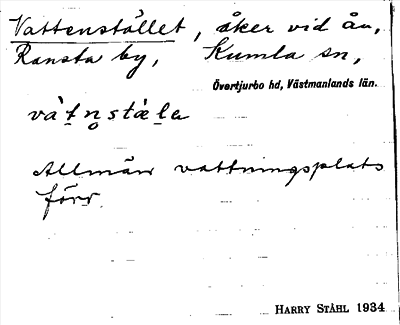 Vattenstället, åker vid ån,
Ransta by, Kumla sn,
Övertjurbo hd, Västmanlands län.
và't̠n̥s̠t̠æl̠a
Allmän vattningsplats
förr.
HARRY STÅHL 1934